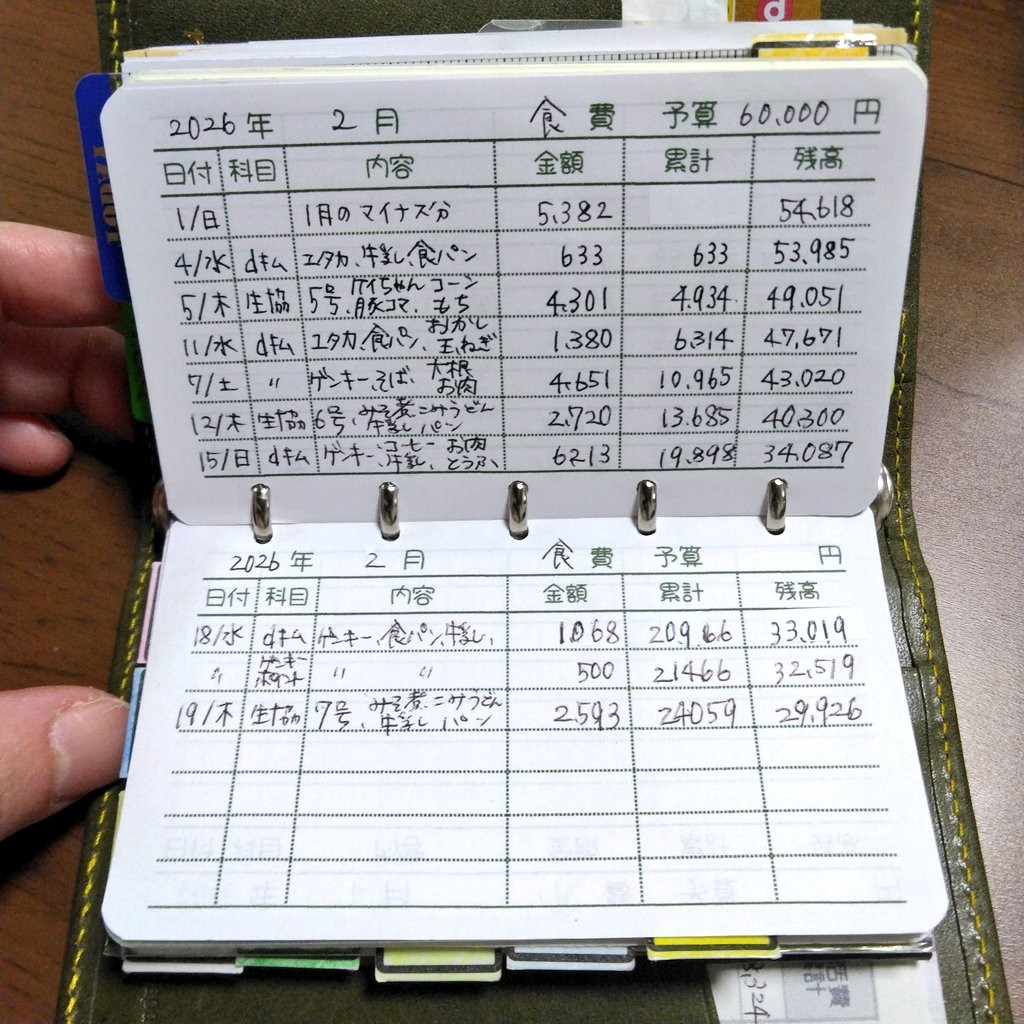 d
2026年 2月 食費 予算 60.000円
日付 科目 内容 金額 累計 残高
1/日 1月のマイナス分 5,382 54,618
4/水 dキム ユタカ、牛乳、食パン 633 633 53,985
5/木 生協 5号、ケイちゃん コーン 4,301 4,934 49,051
5号、豚コマ、もち
11/水 dキム ユタカ、食パン、おかし 1,380 6,314 47,671
玉ねぎ
7/土 〃 ゲンキー、そば、大根 4,651 10,965 43,020
お肉
12/木 生協 6号、みそ煮こみうどん 2,720 13,685 40,300
牛乳 パン
15/日 dキム ゲンキー、コーヒー お肉 6213 19,898 34,087
牛乳、とうふ、
2026年 2月 食費 予算 円
日付 科目 内容 金額 累計 残高
18/水 dキム ゲンキー、食パン、牛乳、 1,068 20,966 33,019
〃 ゲンキーポイント 〃 〃 500 21466 32,519
19/木 生協 7号、みそ煮こみうどん 2,593 24059 29,926
牛乳 パン
3,324